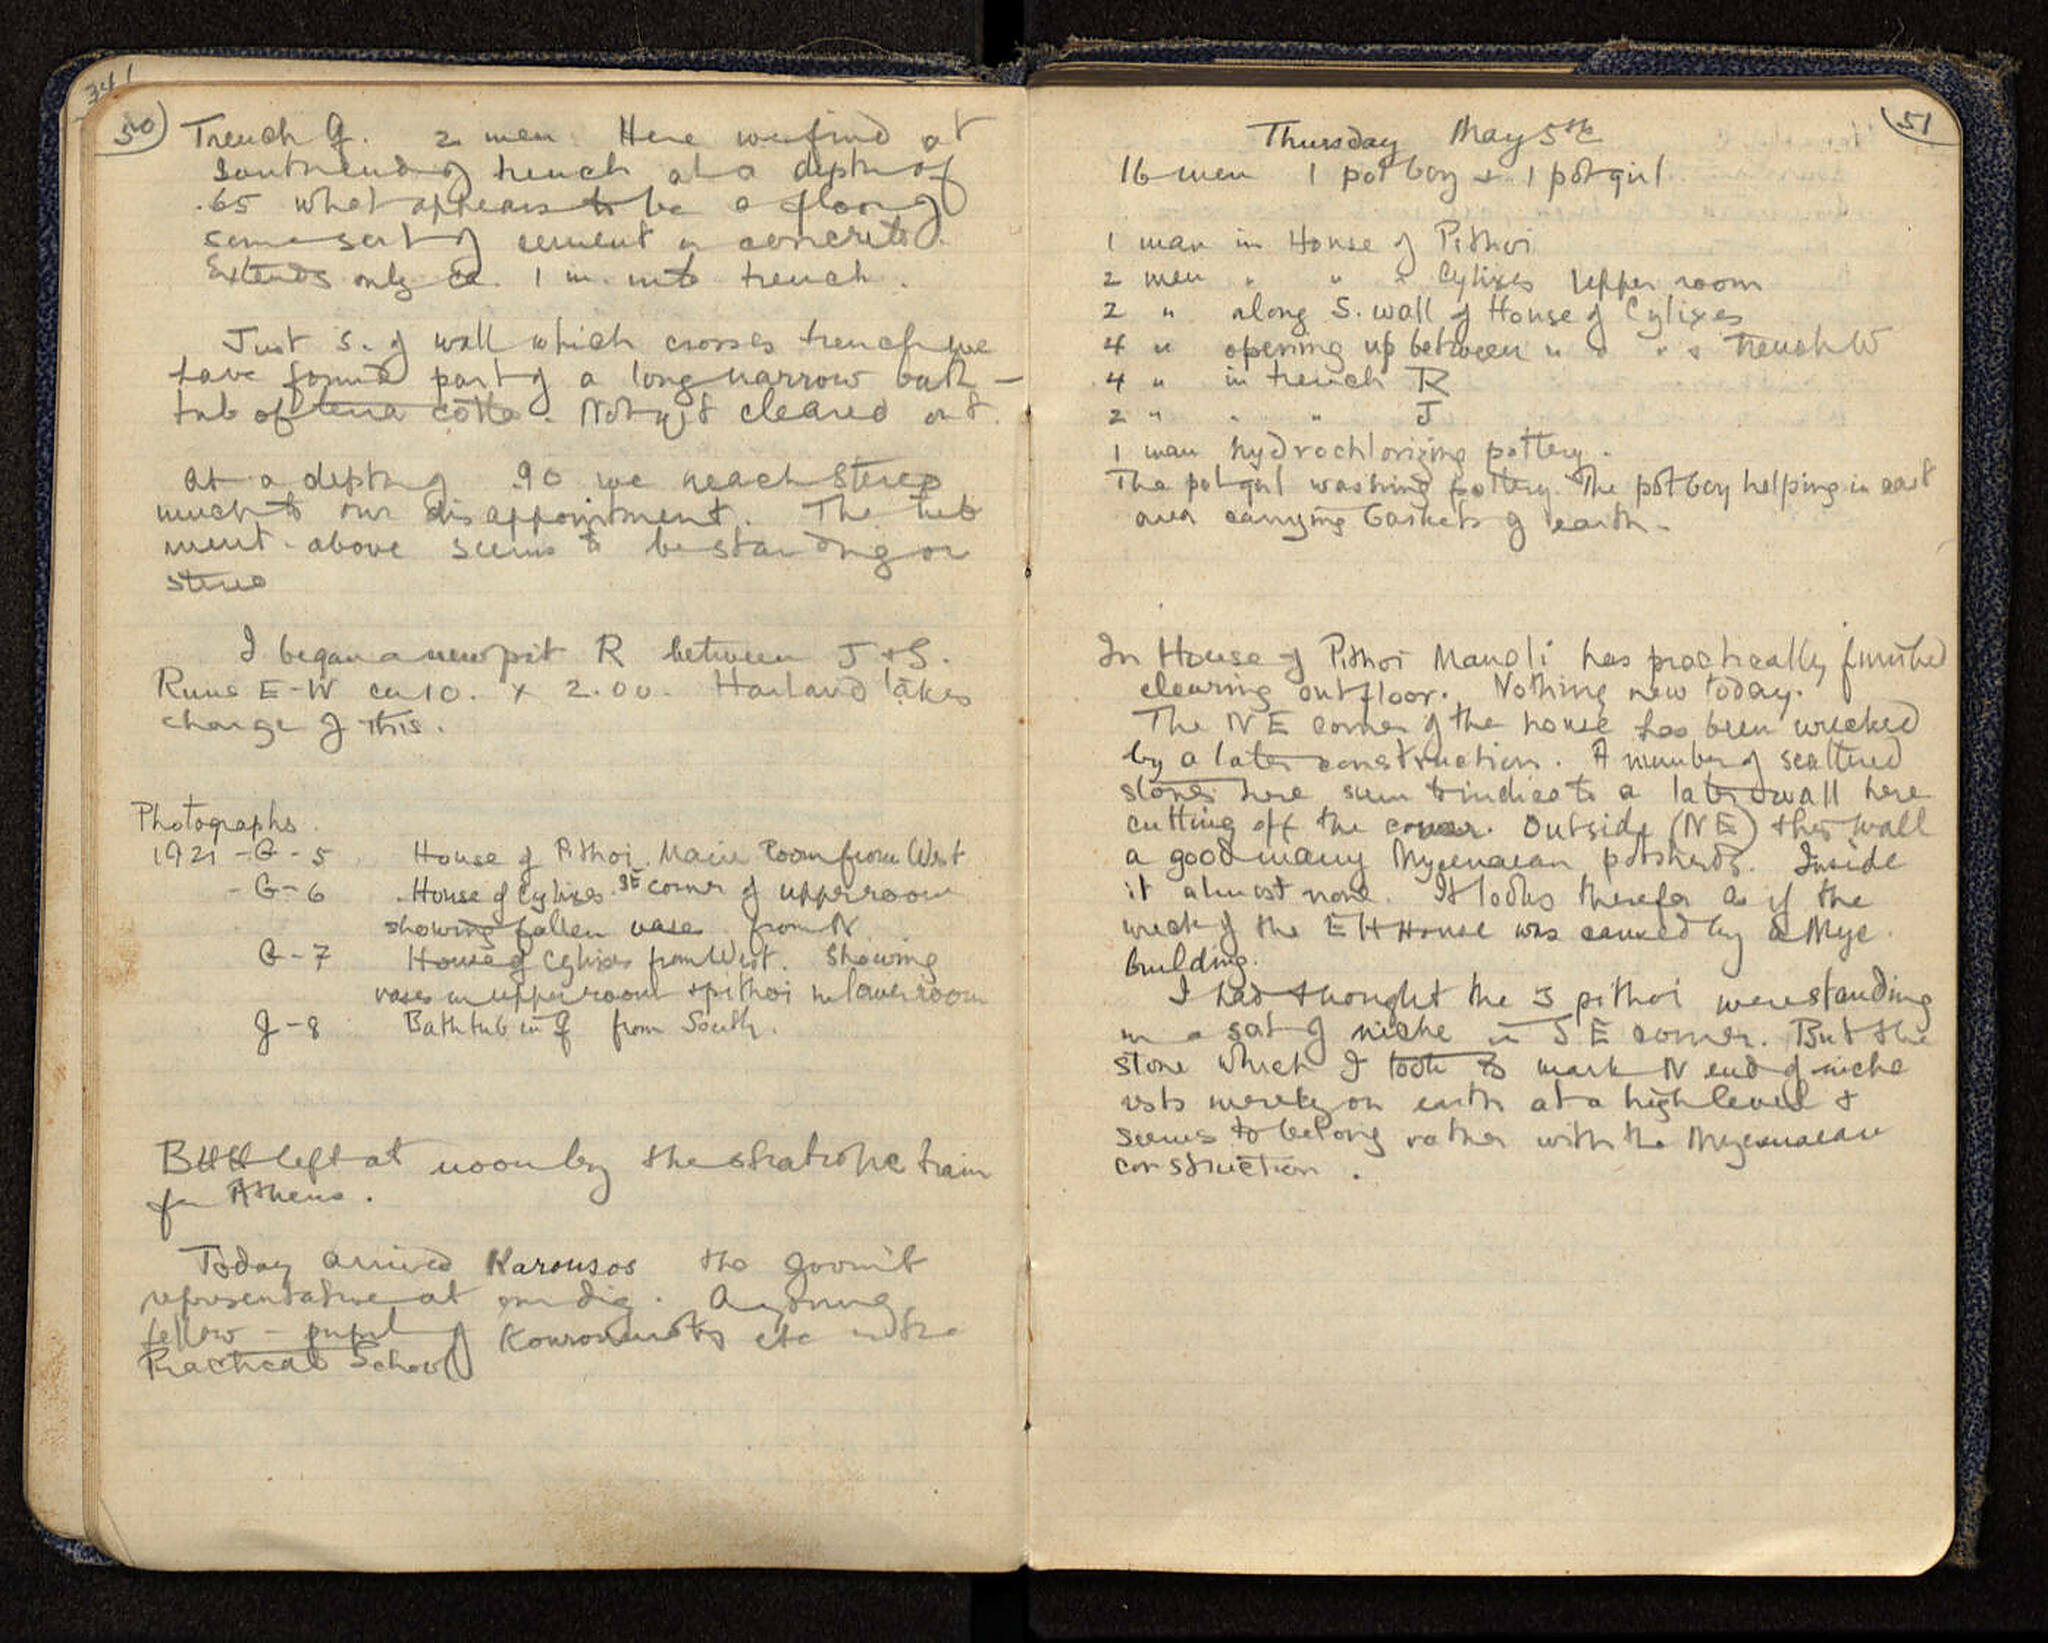 50
Trench G. 2 men Here we find at
south end of trench at a depth of
.65 what appears to be a floor of
some sort of cement or concrete.
Extends only ca. 1 m. into trench.
Just S. of wall which crosses trench we
have found part of a long narrow bath-
tub of terra cotta. Not yet cleared out.
At a depth of .90 we reach stereo
much to our disappointment. The tub
ment. above seems to be standing on
stereo
I began a new pit R between J + G.
Runs E-W ca 10. x 2.00. Harland takes
charge of this.
Photographs.
1921 - G - 5 House of Pithoi. Main Room from West
- G - 6 House of Cylixes. SE corner of upper room
showing fallen vases from N
G - 7 House of Cylixes from West. Showing
vases in upper room + pithoi in lower room
G - 8 Bathtub in G from South.
BHH left at noon by the train
for Athens.
Today arrived Karousos the govm't
representative at our dig. A young
fellow - pupil of Kourouniotis etc in the
Practical School
51
Thursday May 5th
16 men 1 pot boy + 1 pot girl
1 man in House of Pithoi
2 men " " " Cylixes Upper room
2 " along S. wall of House of Cylixes
4 " opening up between " " " + trench W
4 " in trench R
2 " " " J
1 man hydrochlorizing pottery.
The pot girl washing pottery. The pot boy helping in east
area carrying baskets of earth.
In House of Pithoi Manoli has practically finished
clearing out floor. Nothing new today.
The NE corner of the house has been wrecked
by a later construction. A number of scattered
stones here seem to indicate a later wall here
cutting off the corner. Outside (NE) this wall
a good many Mycenaean potsherds. Inside
it almost none. It looks therefor as if the
wreck of the EH House was caused by a Myc.
building.
I had thought the 3 pithoi were standing
in a sort of niche in SE corner. But the
stone which I took to mark N end of niche
rests merely on earth at a high level &
seems to belong rather with the Mycenaean
construction.